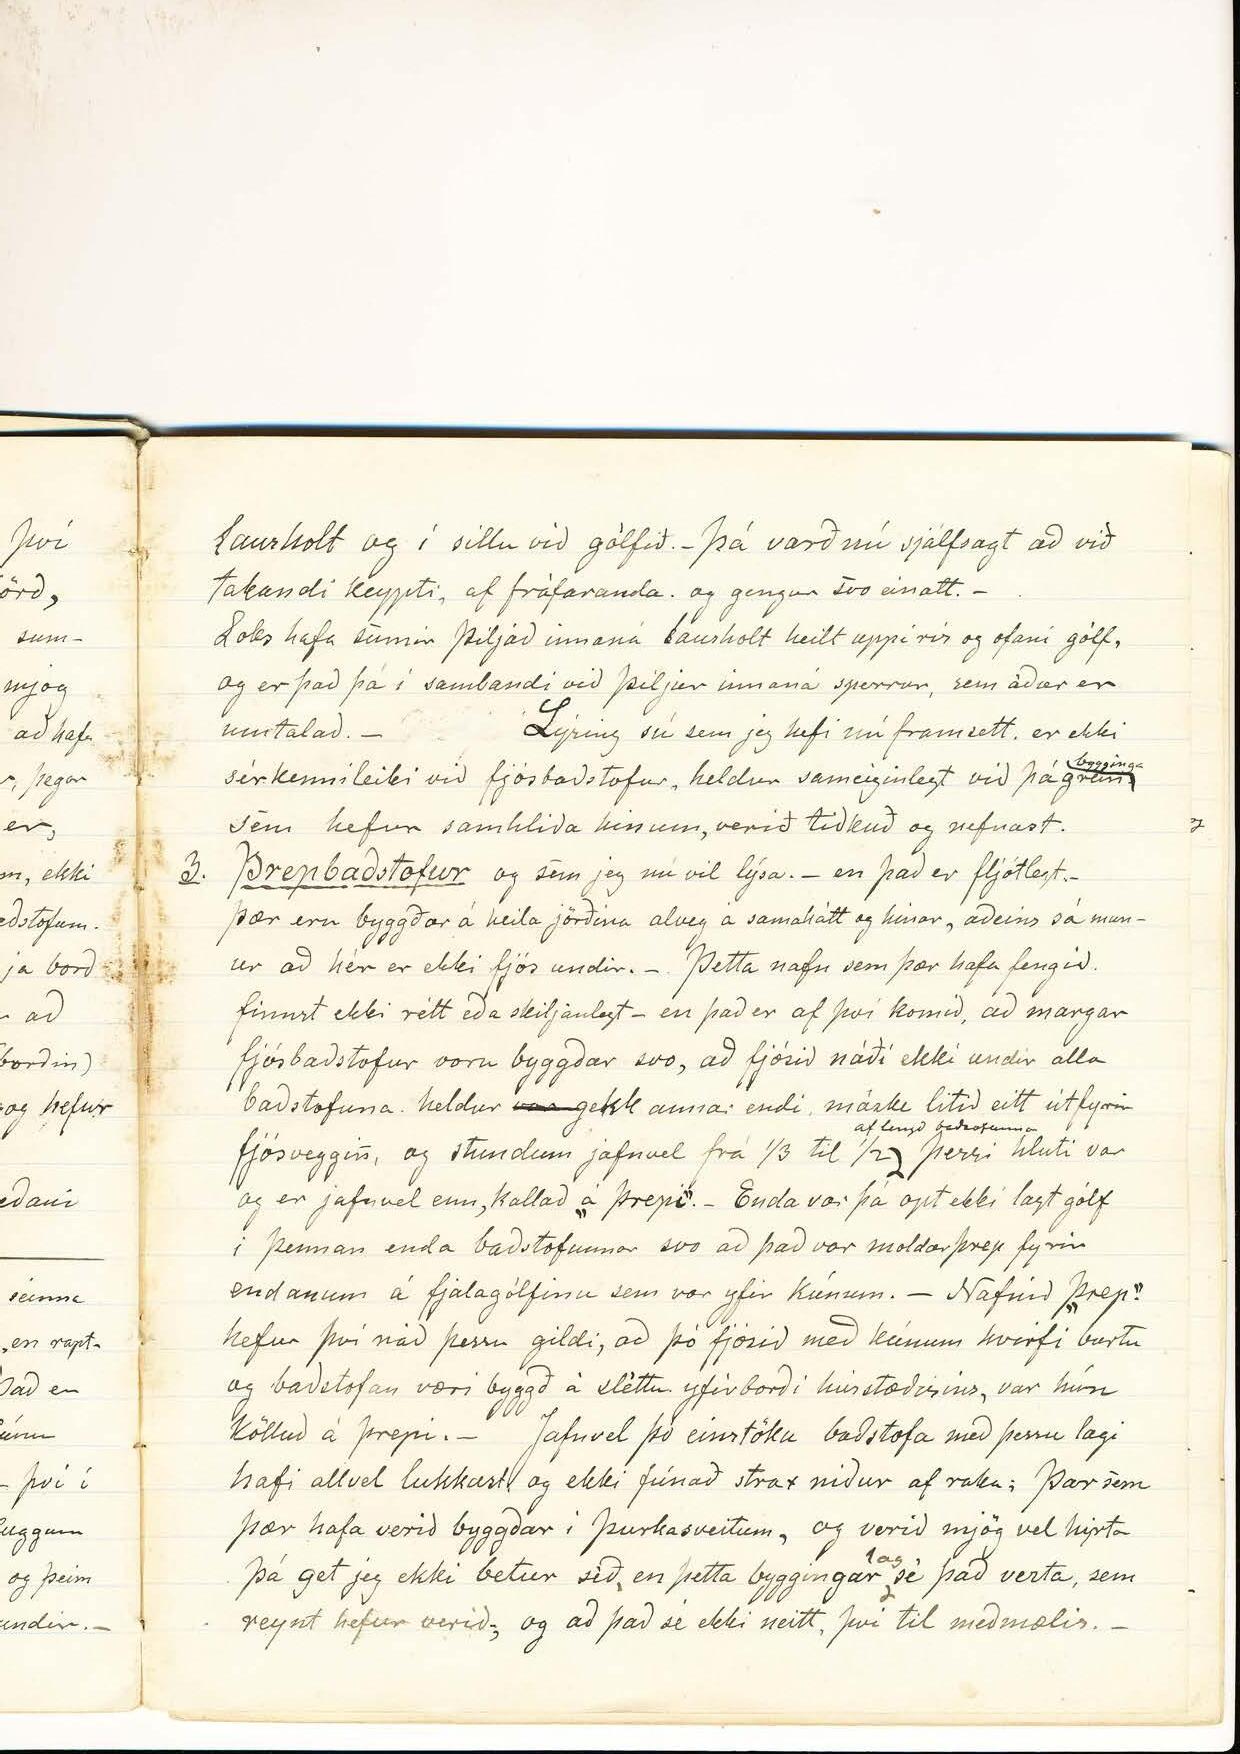 því
örð,
sum-
mjög
að hafa
r, þegar
er,
m, ekki
eðstofum.
ja borð
- að
borðin)
og hefur
eðani
seinna
, en rapt-
Það er
- því í
luggum
og þeim
undir. -
Lausholt og í sillu við gólfið. - Þá varð nú sjálfsagt að við
takandi keypti, af fráfaranda. og gengur svo einatt. -
Loks hafa sumir þiljað innaná lausholt heilt uppí ris og ofaní gólf,
og er það þá í sambandi við þiljur innaná sperrur, sem áður er
umtalað. - Lýsing sú sem jeg hefi nú framsett. er ekki
sérkennileiki við fjósbaðstofur, heldur sameiginlegt við þá bygginga grein,
sem hefur samhliða hinum, verið tíðkuð og nefnast.
3. Þrepbaðstofur og sem jeg nú vil lýsa. - en það er fljótlegt. -
Þær eru byggðar á heila jörðina alveg á samahátt og hinar, aðeins sá mun-
ur að hér er ekki fjós undir. - Þetta nafn sem þær hafa fengið.
finnst ekki rétt eða skiljanlegt - en það er af því komið, að margar
fjósbaðstofur voru byggðar svo, að fjósið náði ekki undir alla
baðstofuna. heldur var gekk annar endi, máske litið eitt útfyrir
fjósveggin̄, og stundum jafnvel frá 1/3 til 1/2 af lengd baðstofunnar þessi hluti var
og er jafnvel enn, kallað „á þrepi". - Enda var þá opt ekki lagt gólf
í þennan enda baðstofunnar svo að það var moldarþrep fyrir
endanum á fjalagólfinu sem var yfir kúnum. - Nafnið „þrep"
hefur því náð þessu gildi, að þó fjósið með kúnum hvirfi burtu
og baðstofan væri byggð á sléttu yfirborði hússtæðisins, var hún
kölluð á þrepi. - Jafnvel þó einstöku baðstofa með þessu lagi
hafi allvel lukkast, og ekki fúnað strax niður af raka; Þar sem
þær hafa verið byggðar í þurkasveitum, og verið mjög vel hirta
þá get jeg ekki betur séð, en þetta byggingar lag sé það versta, sem
reynt hefur verið; og að það sé ekki neitt, því til meðmælis. -